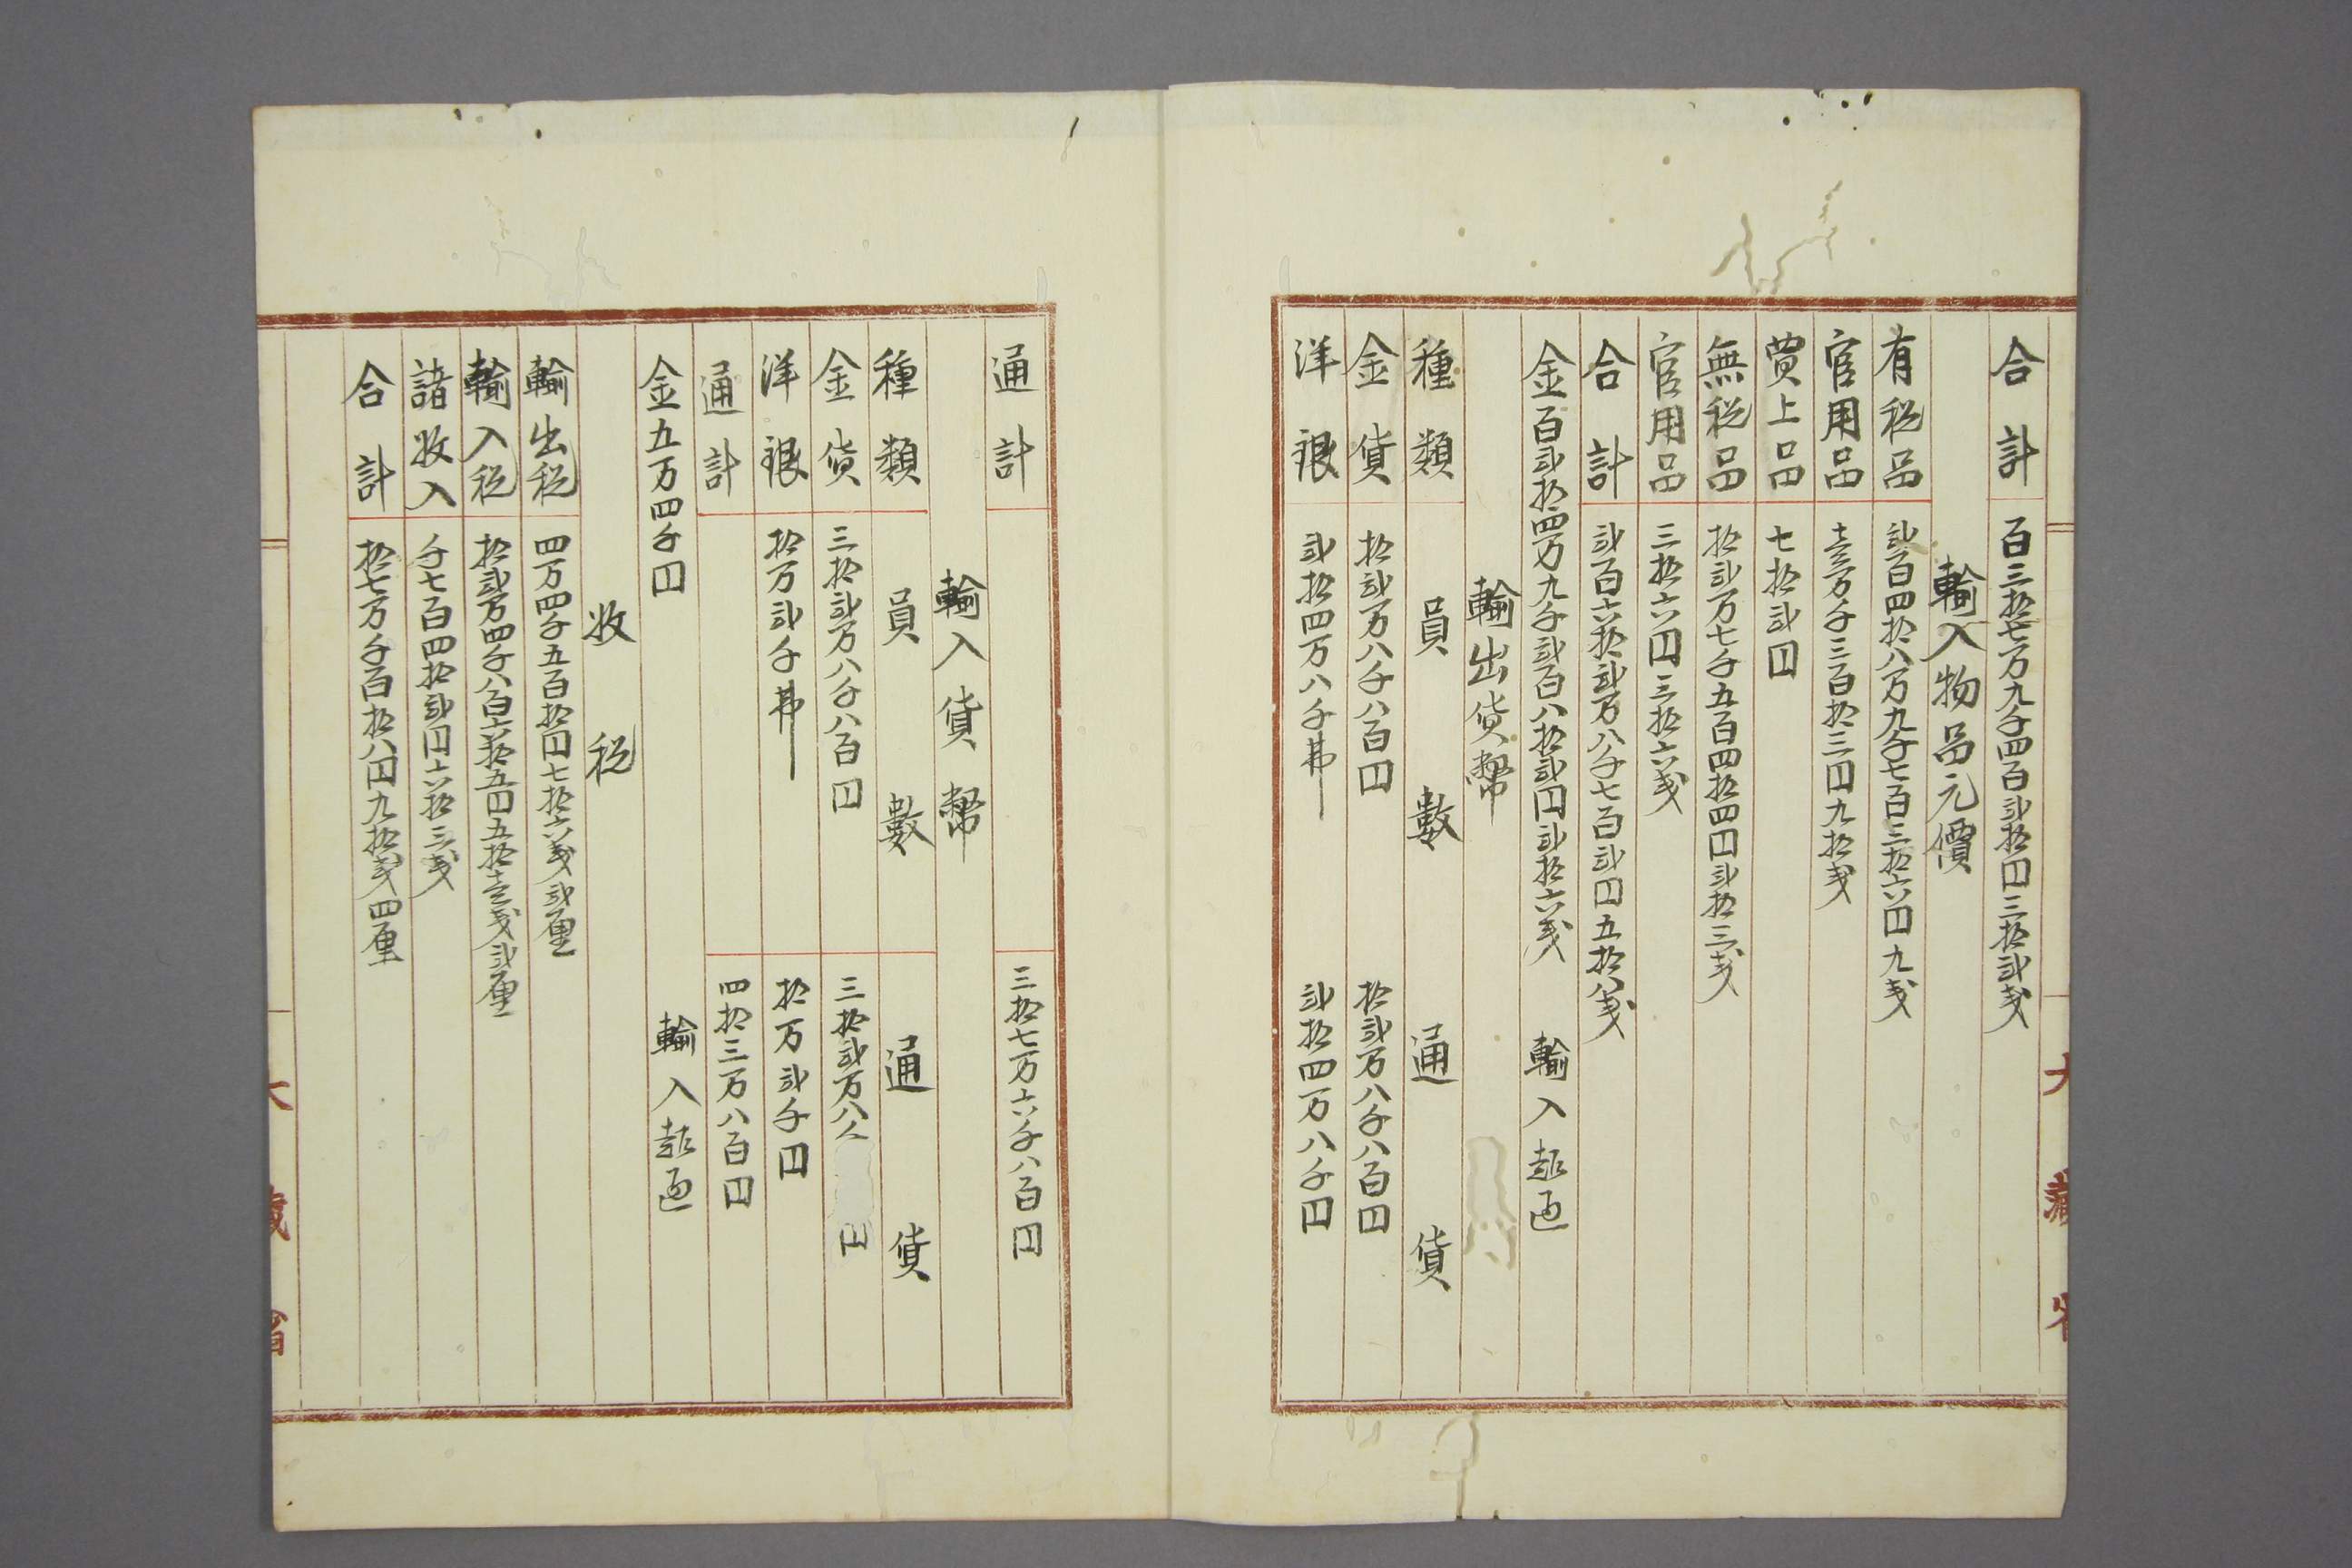 合計 百三拾七万九千四百弐拾円三拾弐戋
輸入物品元價
有税品 弐百四拾八万九千七百三拾六円九戋
官用品 壱万千三百拾三円九拾戋
買上品 七拾弐円
無税品 拾弐万七千五百四拾四円弐拾三戋
官用品 三拾六円三拾六戋
合計 弐百六拾弐万八千七百弐円五拾八戋
金百弐拾四万九千弐百八拾弐円弐拾六戋 輸入超過
輸出貨幣
種類 員數 通貨
金貨 拾弐万八千八百円 拾弐万八千八百円
洋銀 弐拾四万八千弗 弐拾四万八千円
通計 三拾七万六千八百円
輸入貨幣
種類 員數 通貨
金貨 三拾弐万八千八百円 三拾弐万八 円
洋銀 拾万弐千弗 拾万弐千円
通計 四拾三万八百円
金五万四千円 輸入超過
收税
輸出税 四万四千五百拾円七拾六戋弐厘
輸入税 拾弐万四千八百六拾五円五拾壱戋弐厘
諸收入 千七百四拾弐円六拾三戋
合計 拾七万千百拾八円九拾戋四厘
大藏省